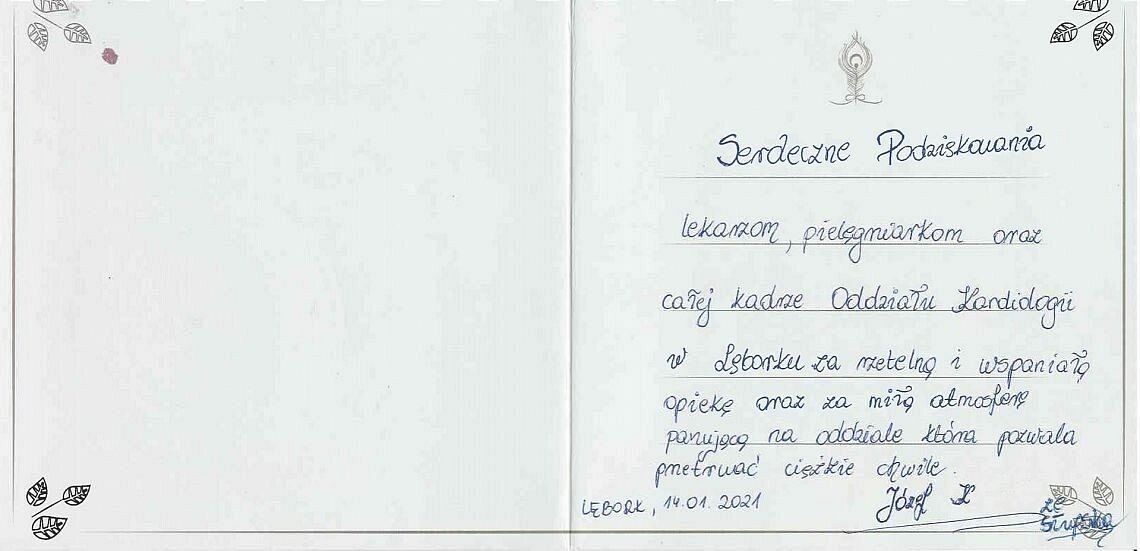 Serdeczne Podziękowania
lekarzom, pielęgniarkom oraz
całej kadrze Oddziału Kardiologii
w Lęborku za rzetelną i wspaniałą
opiekę oraz za miłą atmosferę
panującą na oddziale która pozwala
przetrwać ciężkie chwile.
LĘBORK, 14.01.2021 Józef K
ze
Słupska